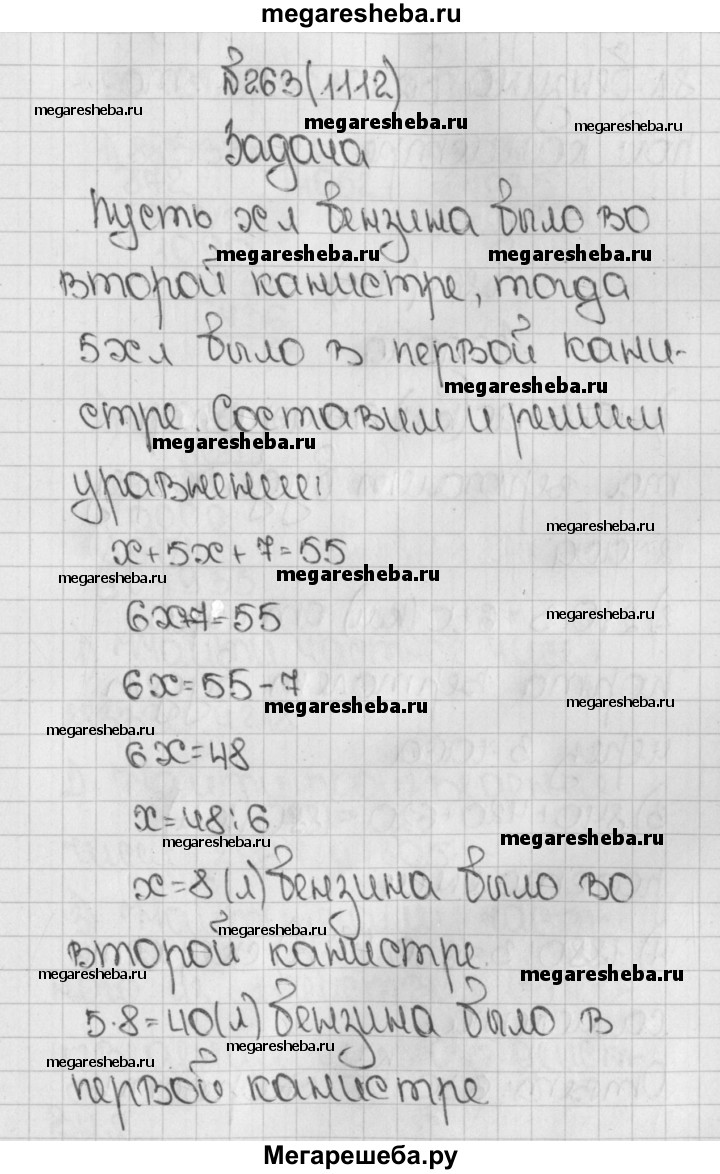 megaresheba.ru
№263(1112)
megaresheba.ru
megaresheba.ru
megaresheba.ru
Задача
Пусть х л бензина было во
megaresheba.ru
megaresheba.ru
второй канистре, тогда
5х л было в первой кани-
megaresheba.ru
стре. Составим и решим
megaresheba.ru
уравнение:
megaresheba.ru
х+5х+7=55
megaresheba.ru
megaresheba.ru
6х+7=55
megaresheba.ru
6х=55-7
megaresheba.ru
megaresheba.ru
megaresheba.ru
6х=48
х=48:6
megaresheba.ru
megaresheba.ru
х=8(л) бензина было во
megaresheba.ru
второй канистре.
megaresheba.ru
megaresheba.ru
5·8=40(л) бензина было в
megaresheba.ru
megaresheba.ru
первой канистре.
Мегарешеба.ру